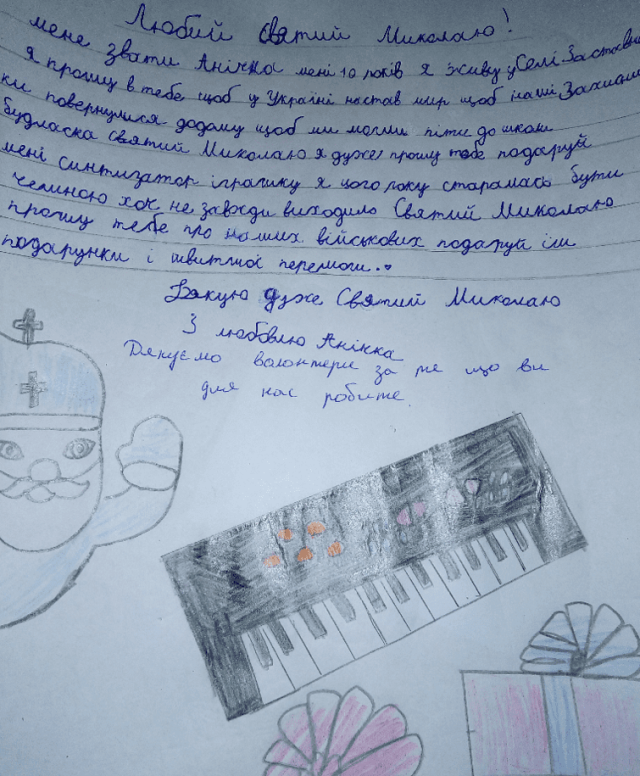 Любий святий Миколаю!
мене звати Анічка мені 10 років я живу у Селі Заставки
я прошу в тебе щоб у Україні настав мир щоб наші Захисни
ки повернулися додому щоб ми могли піти до школи
будласка святий Миколаю я дуже прошу тебе подаруй
мені синтизатор іграшку я цього року старалась бути
чемною хоч не завжди виходило Святий Миколаю
прошу тебе про наших військових подаруй їм
подарунки і швитчої перемоги.
Дякую дуже Святий Миколаю
З любовлю Анічка
Дякуємо волонтери за те що ви
для нас робите